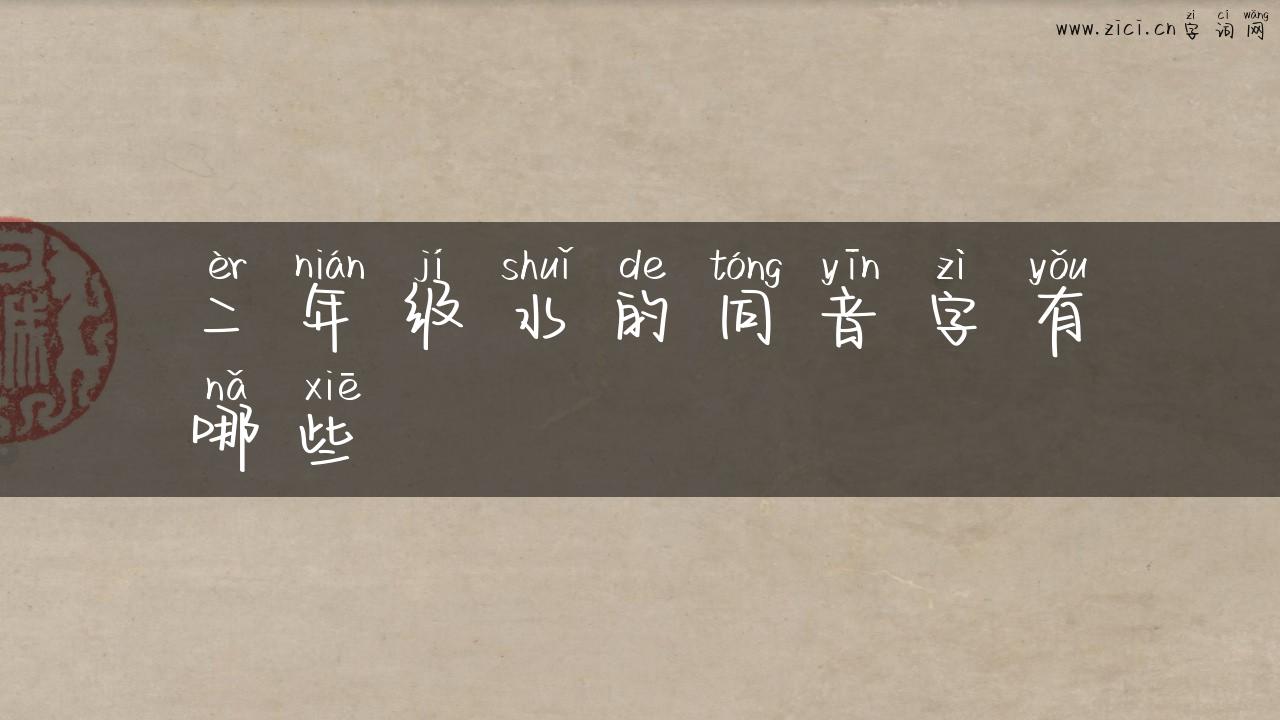 zì cí wǎng
www.zici.cn 字 词 网
èr nián jí shuǐ de tóng yīn zì yǒu
二 年 级 水 的 同 音 字 有
nǎ xiē
哪 些